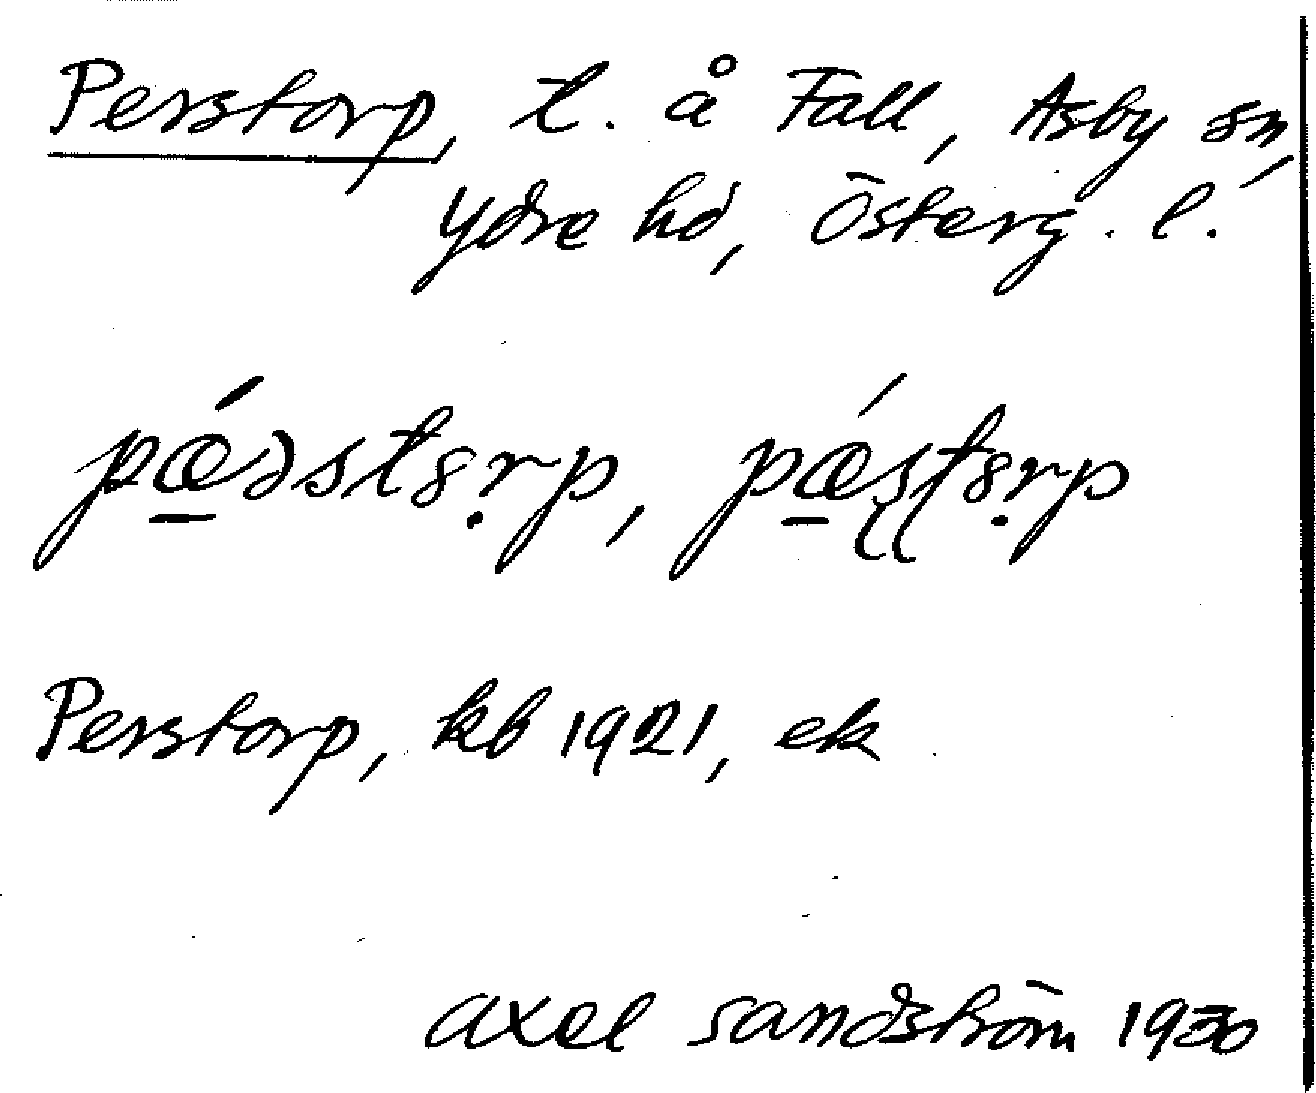 Perstorp, t. å Fall, Asby sn,
Ydre hd, Österg. l.
pǽ̱ɔstȣṛp, pǽ̱ʂʈȣṛp
Perstorp, kb 1921, ek
Axel Sandström 1930